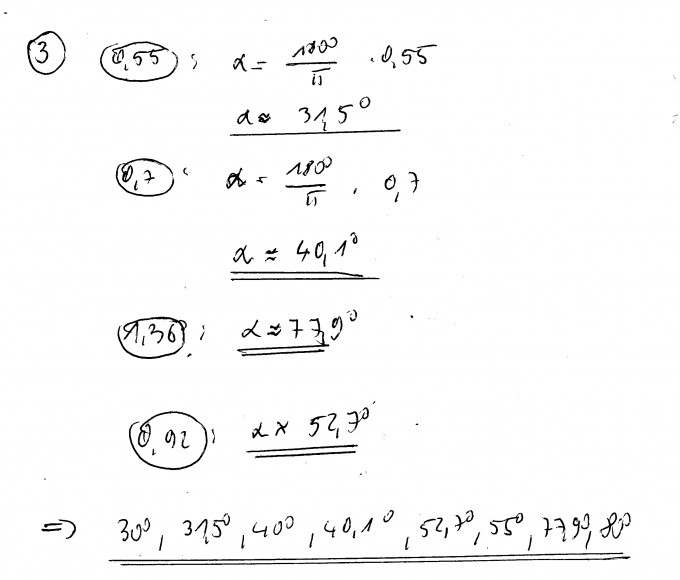 3 0,55 : α = 180°/π · 0,55
α ≈ 31,5°
0,7 : α = 180°/π · 0,7
α ≈ 40,1°
1,36 : α ≈ 77,9°
0,92 : α ≈ 52,7°
=> 30°, 31,5°, 40°, 40,1°, 52,7°, 55°, 77,9°, 80°